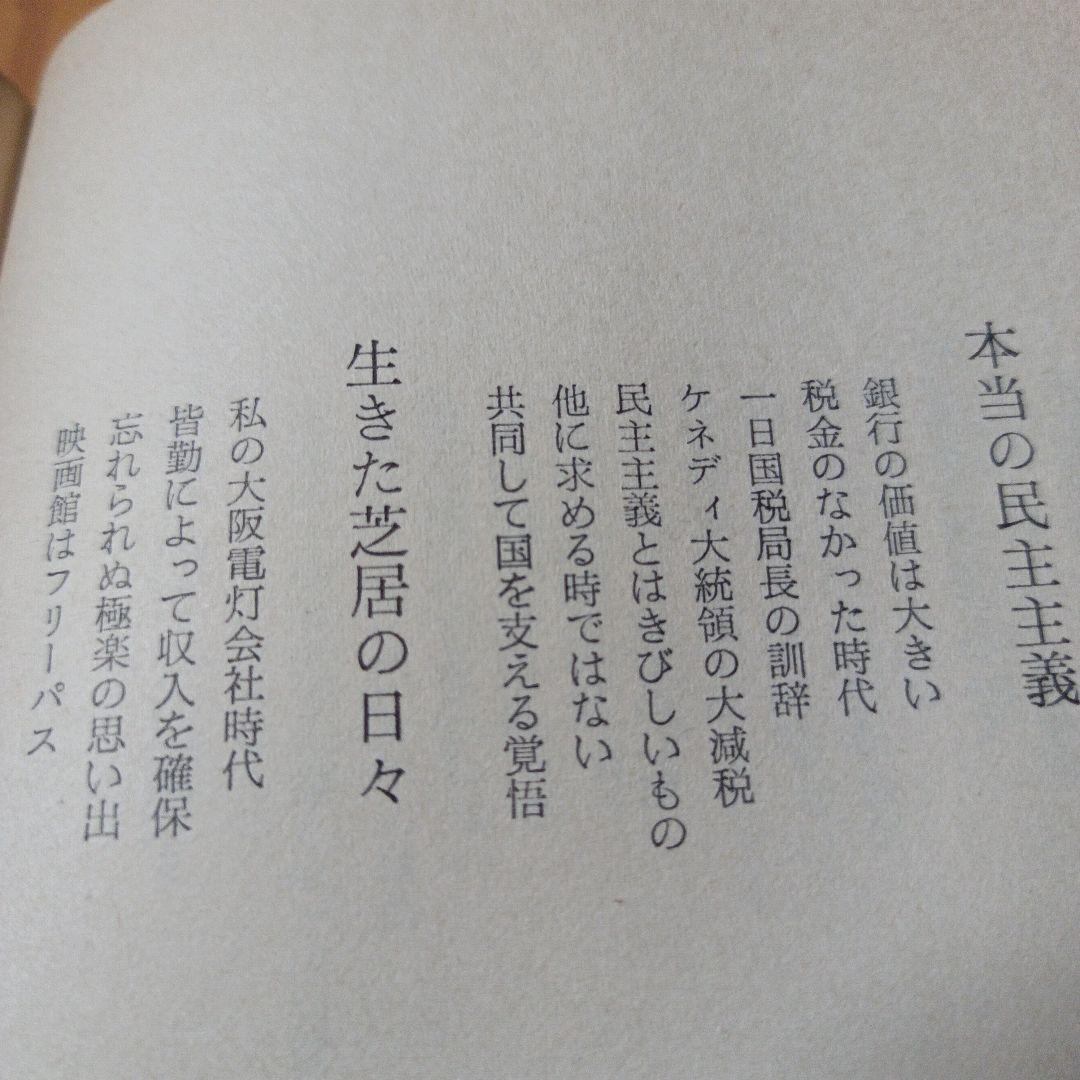 本当の民主主義
銀行の価値は大きい
税金のなかった時代
一日国税局長の訓辞
ケネディ大統領の大減税
民主主義とはきびしいもの
他に求める時ではない
共同して国を支える覚悟
生きた芝居の日々
私の大阪電灯会社時代
皆勤によって収入を確保
忘れられぬ極楽の思い出
映画館はフリーパス